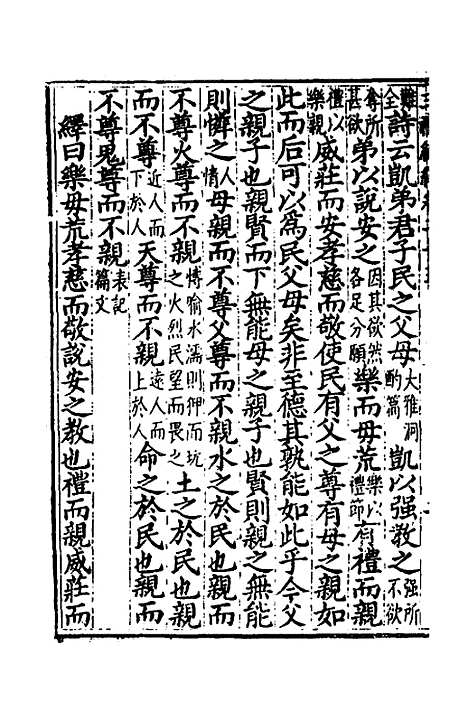 詩云凱弟君子民之父母大雅泂酌篇凱以强教之强所不欲
奪所甚欲弟以說安之因其欲然各足分願樂而毋荒樂以禮節有禮而親
禮以樂親威莊而安孝慈而敬使民有父之尊有母之親如
此而后可以爲民父母矣非至德其孰能如此乎今父
之親子也親賢而下無能母之親子也賢則親之無能
則憐之人情母親而不尊父尊而不親水之於民也親而
不尊火尊而不親博喻水濡則狎而玩之火烈民望而畏之土之於民也親而
而不尊近人而下於人天尊而不親遠人而上於人命之於民也親而
不尊鬼尊而不親表記篇文
繹曰樂毋荒孝慈而敬說安之教也禮而親威莊而